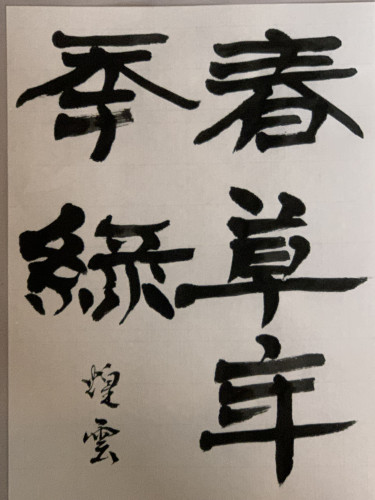 春草年
秊綠
煌雲